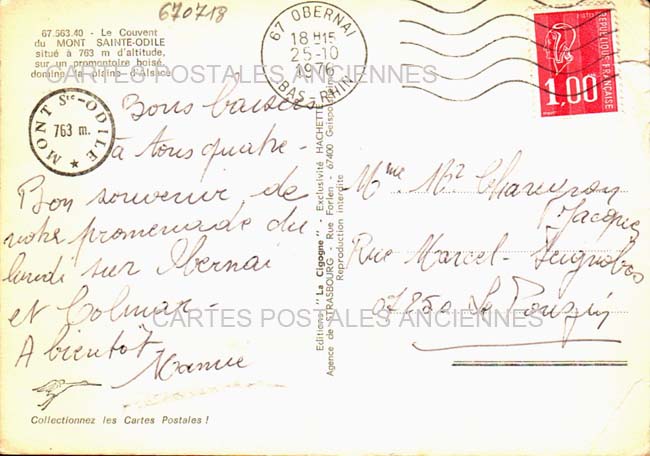 670718
67.663.40 - Le Couvent
du MONT SAINTE-ODILE
situé à 763 m d'altitude,
sur un promontoire boisé,
domine la plaine d'Alsace
CARTES POSTALES ANCIENNES
MONT Ste-ODILE
763 m.
67 OBERNAI
18H15
25-10
1976
BAS-RHIN
REPUBLIQUE FRANÇAISE
1,00
Bons baisers
à tous quatre -
Bon souvenir de
notre promenade du
lundi sur Obernai
et Colmar -
A bientôt
Mamie
Editions "La Cigogne" - Exclusivité HACHETTE
Agence de STRASBOURG - Rue Forlen - 67400 Geispolsheim
Reproduction interdite
Mme Mr Chareyron
Jacques
Rue Marcel - Seignobos
07850 Le Pouzin
CARTES POSTALES ANCIENNES
Collectionnez les Cartes Postales !